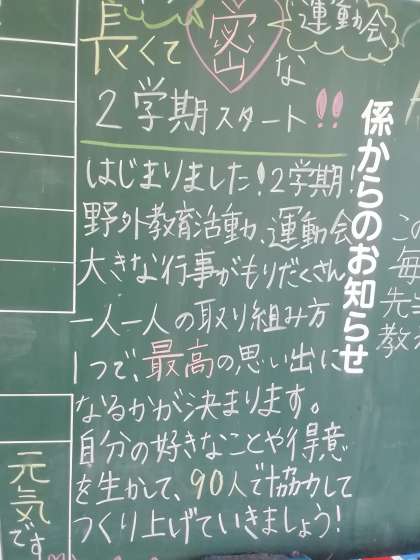 長くて密な
運動会
2学期スタート!!
はじまりました!2学期!
野外教育活動、運動会
大きな行事がもりだくさん
一人一人の取り組み方
1つで、最高の思い出に
なるかが決まります。
自分の好きなことや得意
を生かして、90人で協力して
つくり上げていきましょう!
係からのお知らせ
元気です
この
毎
先
教